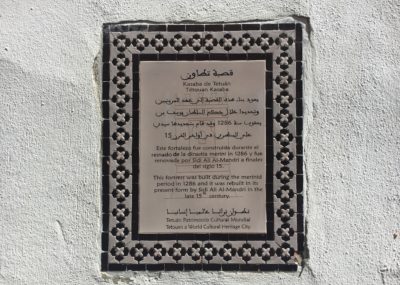 قصبة تطاون
Kasaba de Tetuán
Tetouan Kasaba
يعود بناء هذه القصبة إلى عهد المرينيين
وتحديدا خلال حكم السلطان يوسف بن
يعقوب سنة 1286 وقد قام بتجديدها سيدي
علي المنظري في أواخر القرن 15
Este fortaleza fue construida durante el
reinado de la dinastía meriní in 1286 y fue
renovada por Sidi Ali Al-Mandri a finales
del siglo 15.
This fortress was built during the merinid
period in 1286 and it was rebuilt in its
present form by Sidi Ali Al-Mandri in the
late 15th century.
تطوان تراثا عالميا إنسانيا
Tetuán Patrimonio Cultural Mundial
Tetouan a World Cultural Heritage City